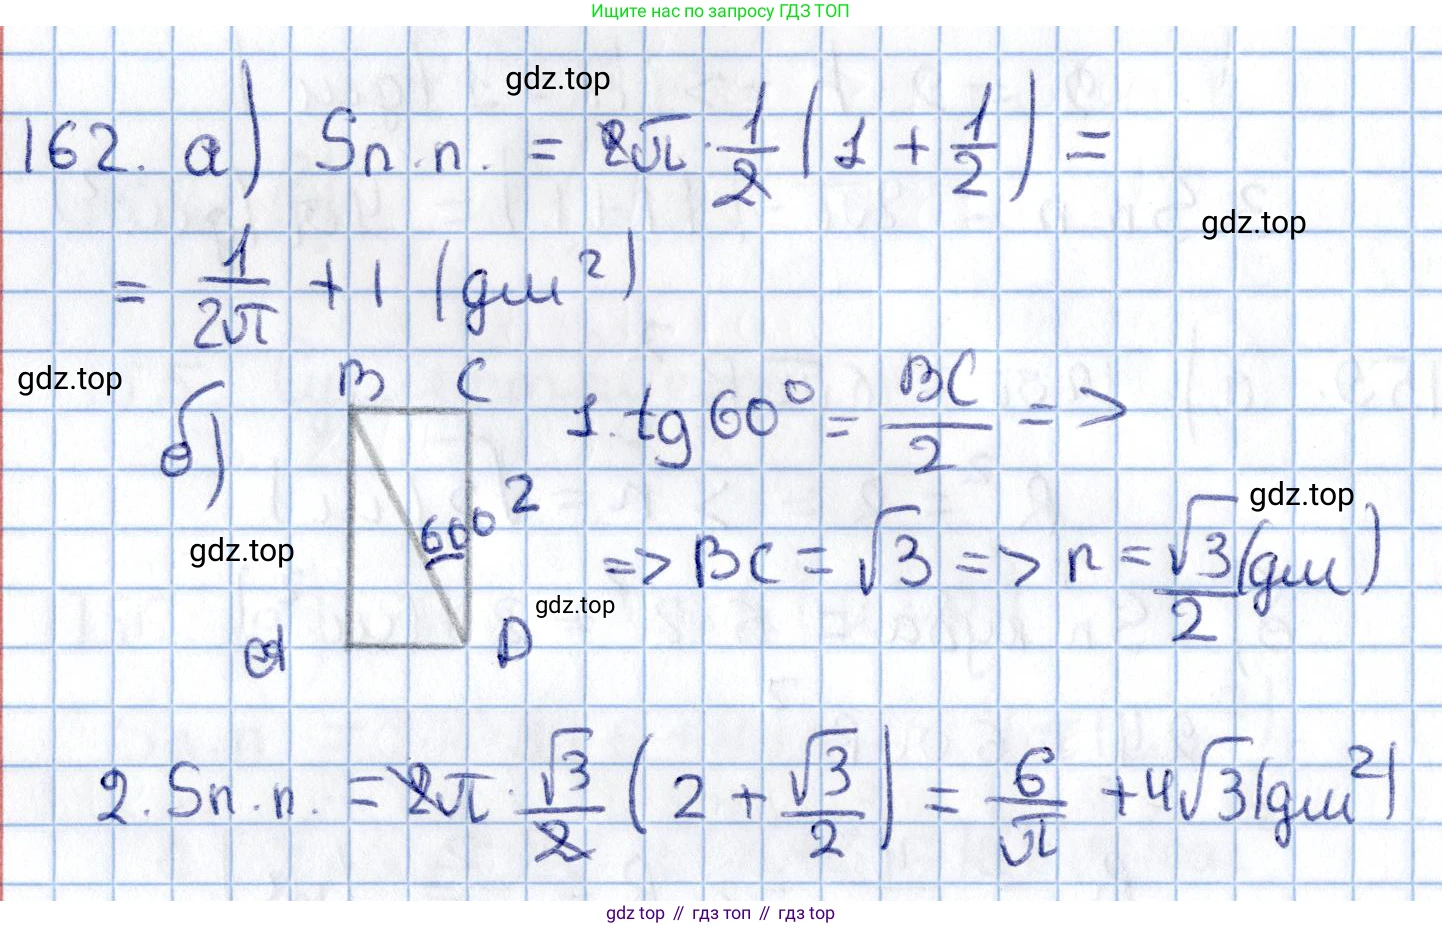 Ищите нас по запросу ГДЗ ТОП
gdz.top
162. а) Sп.п. = 2π · 1/2 (1 + 1/2) =
gdz.top
= 1/2π + 1 (дм²)
gdz.top
б)
B C
1. tg 60⁰ = BC/2 =>
60⁰ 2
gdz.top
gdz.top
=> BC = √3 => r = √3/2 (дм)
gdz.top
A D
2. Sп.п. = 2π · √3/2 (2 + √3/2) = 6/π + 4√3 (дм²)
gdz top // гдз топ // гдз top